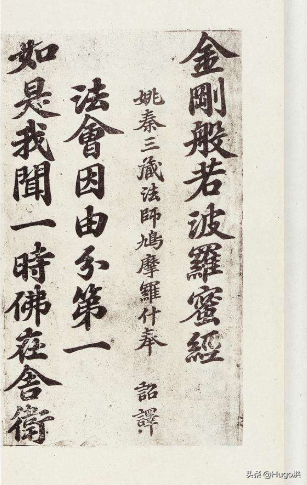 金剛般若波羅蜜經
姚秦三藏法師鳩摩羅什奉 詔譯
法會因由分第一
如是我聞一時佛在舍衛
头条@Hugo洪